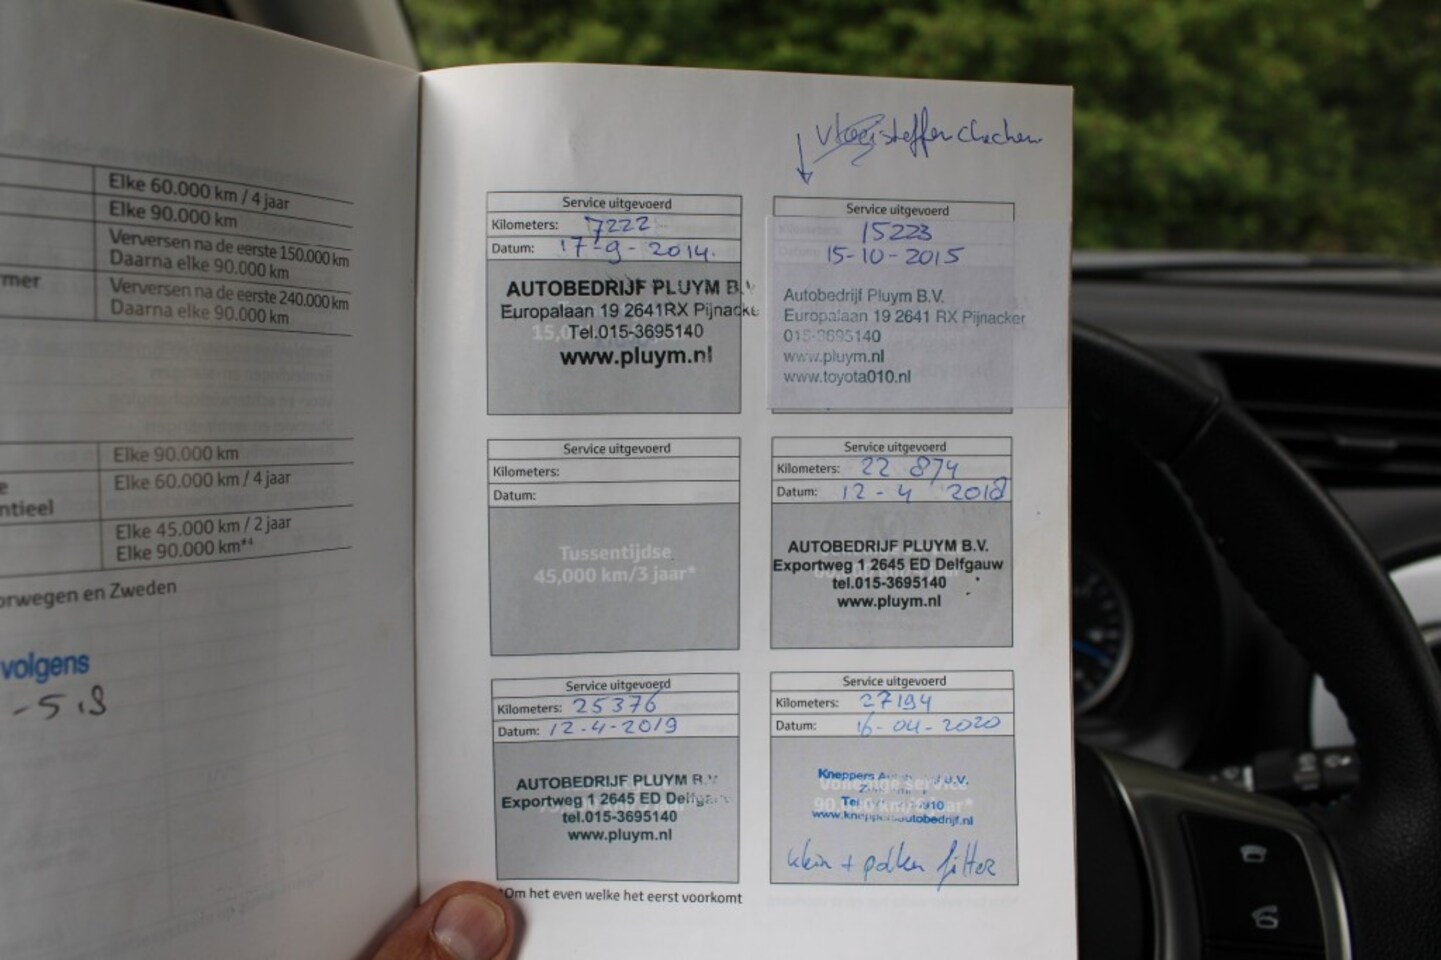 Elke 60.000 km / 4 jaar
Elke 90.000 km
Verversen na de eerste 150.000 km
Daarna elke 90.000 km
rmer
Verversen na de eerste 240.000 km
Daarna elke 90.000 km
Elke 90.000 km
e
ntieel
Elke 60.000 km / 4 jaar
Elke 45.000 km / 2 jaar
Elke 90.000 km*⁴
orwegen en Zweden
volgens
Service uitgevoerd
Kilometers: 7222
Datum: 17-9-2014.
AUTOBEDRIJF PLUYM B.V
Europalaan 19 2641RX Pijnacke
Tel.015-3695140
www.pluym.nl
Service uitgevoerd
15223
15-10-2015
Autobedrijf Pluym B.V.
Europalaan 19 2641 RX Pijnacker
015-3695140
www.pluym.nl
www.toyota010.nl
Service uitgevoerd
Kilometers:
Datum:
Tussentijdse
45,000 km/3 jaar*
Service uitgevoerd
Kilometers: 22 874
Datum: 12-4 2018
AUTOBEDRIJF PLUYM B.V.
Exportweg 1 2645 ED Delfgauw
tel.015-3695140
www.pluym.nl
Service uitgevoerd
Kilometers: 25376
Datum: 12-4-2019
AUTOBEDRIJF PLUYM B.V
Exportweg 1 2645 ED Delfgauw
tel.015-3695140
www.pluym.nl
Service uitgevoerd
Kilometers: 27194
Datum: 16-04-2020
Kneppers
Volledige service
90,000 km/6 jaar*
www.kneppersautobedrijf.nl
klein + pollen filter
*Om het even welke het eerst voorkomt